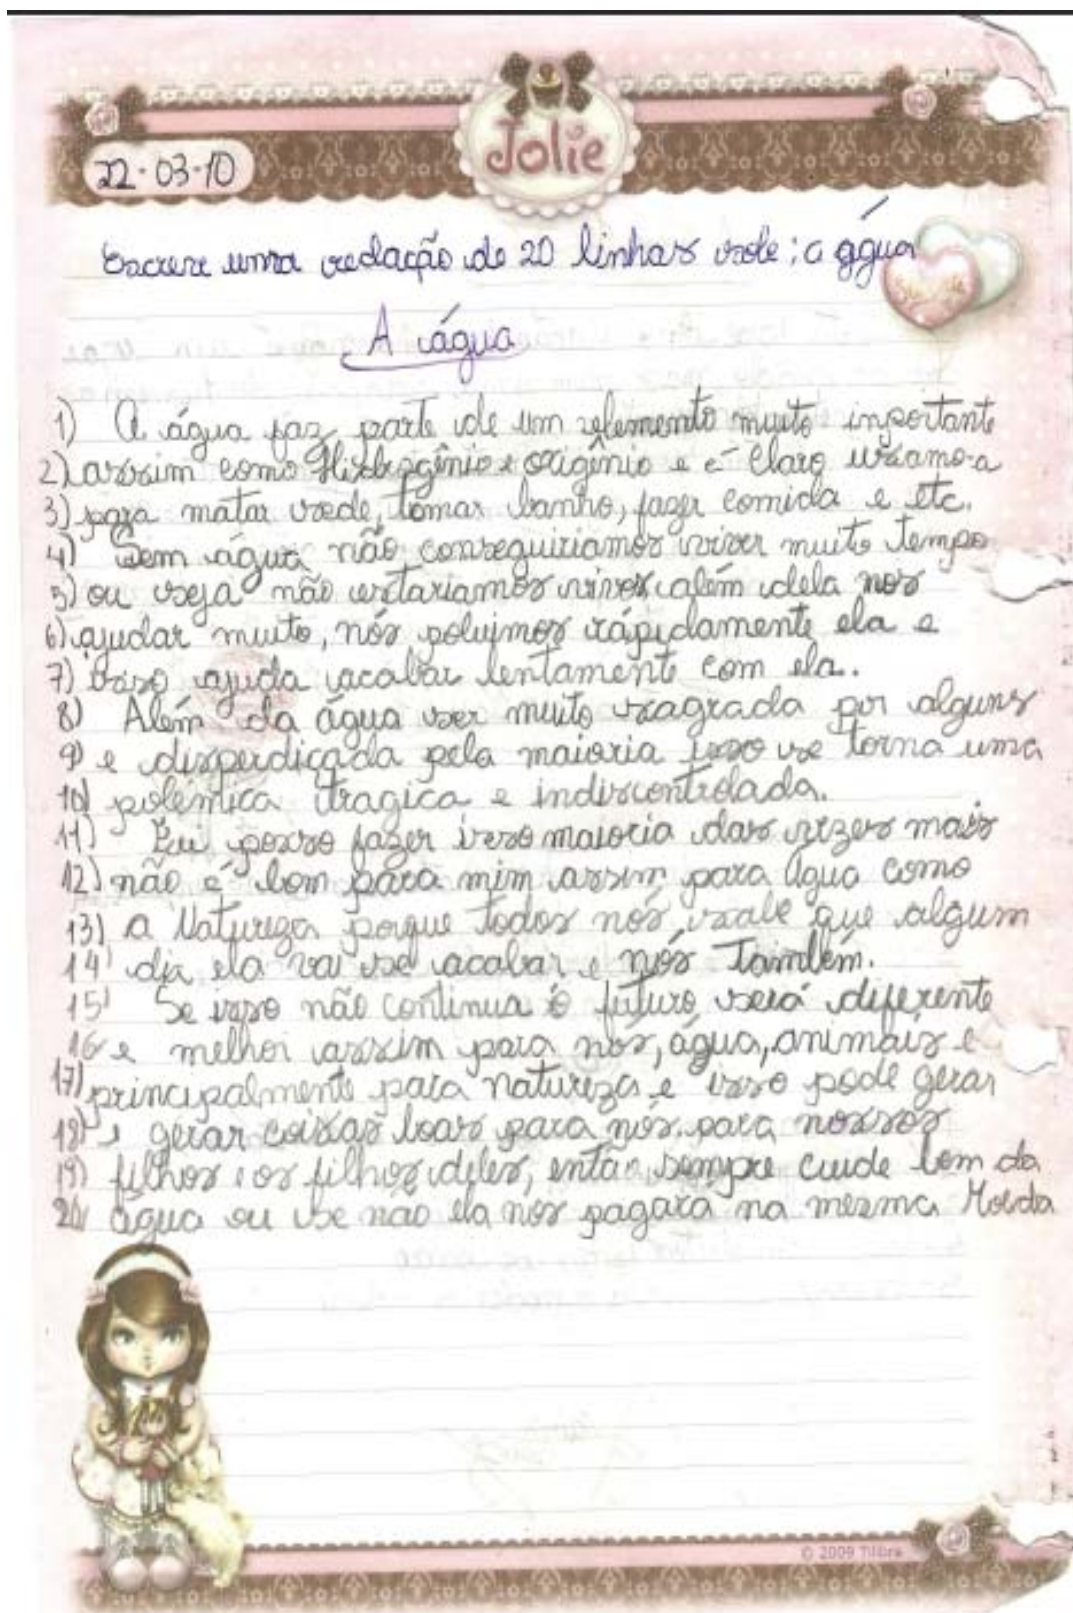 Jolie
22·03·10
Escreve uma redação de 20 linhas sobe: a água
A água
1) A água faz parte de um elemento muito inportante
2) assim como e oxigênio e é Claro usamo-a
3) para matar sede, tomar banho, fazer comida e etc.
4) Sem água não conseguiriamos viver muito tempo
5) ou seja não estariamos vivos além dela nos
6) ajudar muito, nós poluimos rápidamente ela e
7) isso ajuda acabar lentamente com ela.
8) Além da água ser muito sagrada por alguns
9) e disperdiçada pela maioria isso se torna uma
10) polémica tragica e indiscontrolada.
11) Eu posso fazer isso maioria das vezes mais
12) não é bom para mim assim para água como
13) a Natureza porque todos nós sabe que algum
14) dia ela vai se acabar e nós Também.
15) Se isso não continua o futuro será diferente
16 e melhor assim para nós, água, animais e
17) principalmente para natureza e isso pode gerar
18) e gerar coisas boas para nós para nossos
19) filhos e os filhos deles, então sempre cuide bem da
20) água ou se não ela nos pagará na mesma
© 2009 Tilibra